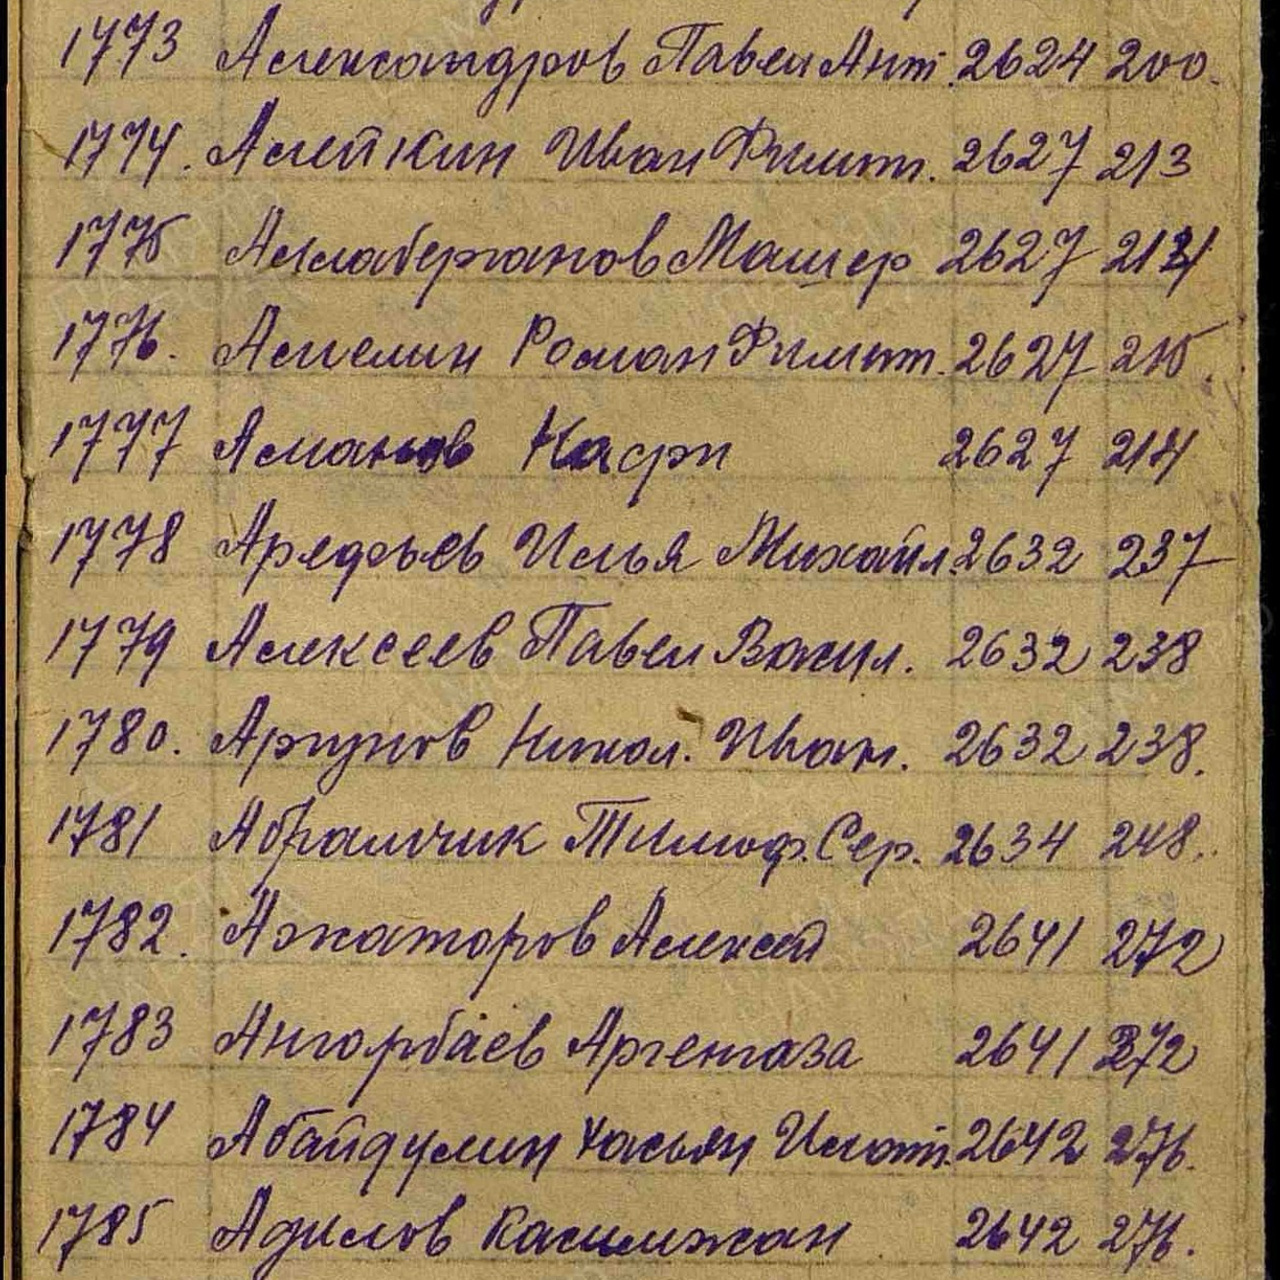 1773 Александров Павел Ант. 2624 200.
1774. Алейкин Иван Филип. 2627 213
1775 Аллаберганов Машер 2627 214
1776. Амелин Роман Филип. 2627 215.
1777 Аманов Кафи 2627 214
1778 Арефьев Илья Михайл. 2632 237
1779 Алексеев Павел Васил. 2632 238
1780. Аргунов Никол. Иван. 2632 238.
1781 Абрамчик Тимоф. Сер. 2634 248.
1782. Ажаторов Алексей 2641 272
1783 Ангарбаев Аргенгаза 2641 272
1784 Абайдулин Хасьян 2642 276.
1785 Адилов Касимжан 2642 276.